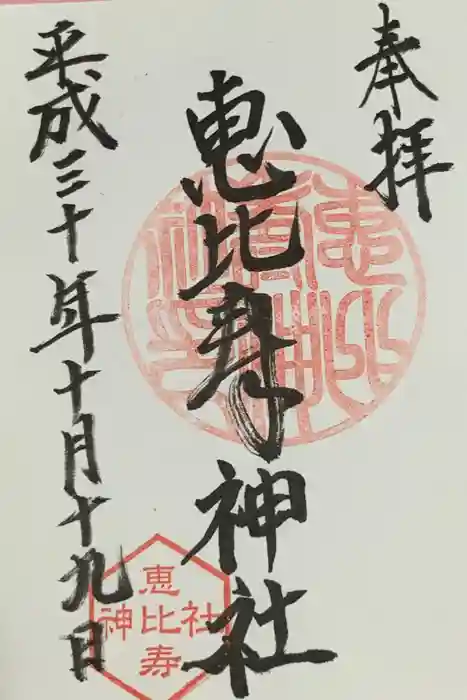 奉拝
恵比寿神社
平成三十年十月十九日
恵比寿
神社